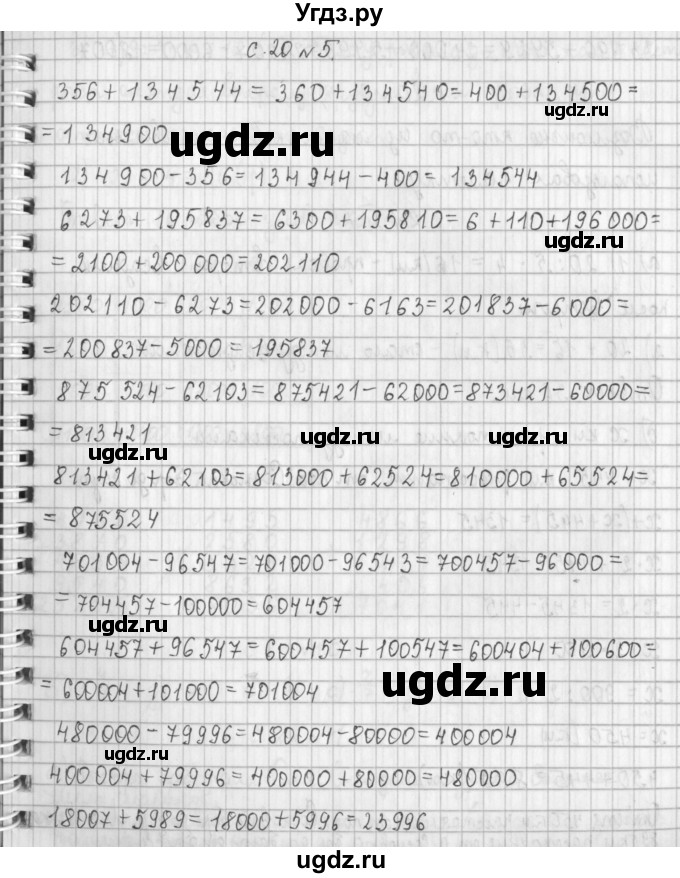 Угдз.ру
с. 20 №5.
356 + 134 544 = 360 + 134 540 = 400 + 134500 =
= 134900
ugdz.ru
ugdz.ru
134 900 - 356 = 134 944 - 400 = 134544
6273 + 195837 = 6300 + 195810 = 6 + 110 + 196 000 =
ugdz.ru
= 2100 + 200 000 = 202110
202110 - 6273 = 202000 - 6163 = 201837 - 6000 =
= 200837 - 5000 = 195837
875 524 - 62103 = 875421 - 62000 = 873421 - 60000 =
= 813421
ugdz.ru ugdz.ru ugdz.ru
813421 + 62103 = 813000 + 62524 = 810000 + 65524 =
= 875524
701004 - 96547 = 701000 - 96543 = 700457 - 96000 =
= 704457 - 100000 = 604457
ugdz.ru
604457 + 96547 = 600457 + 100547 = 600404 + 100600 =
= 600004 + 101000 = 701004
ugdz.ru
480000 - 79996 = 480004 - 80000 = 400004
ugdz.ru
400 004 + 79996 = 400000 + 80000 = 480000
18007 + 5989 = 18000 + 5996 = 23996
ugdz.ru